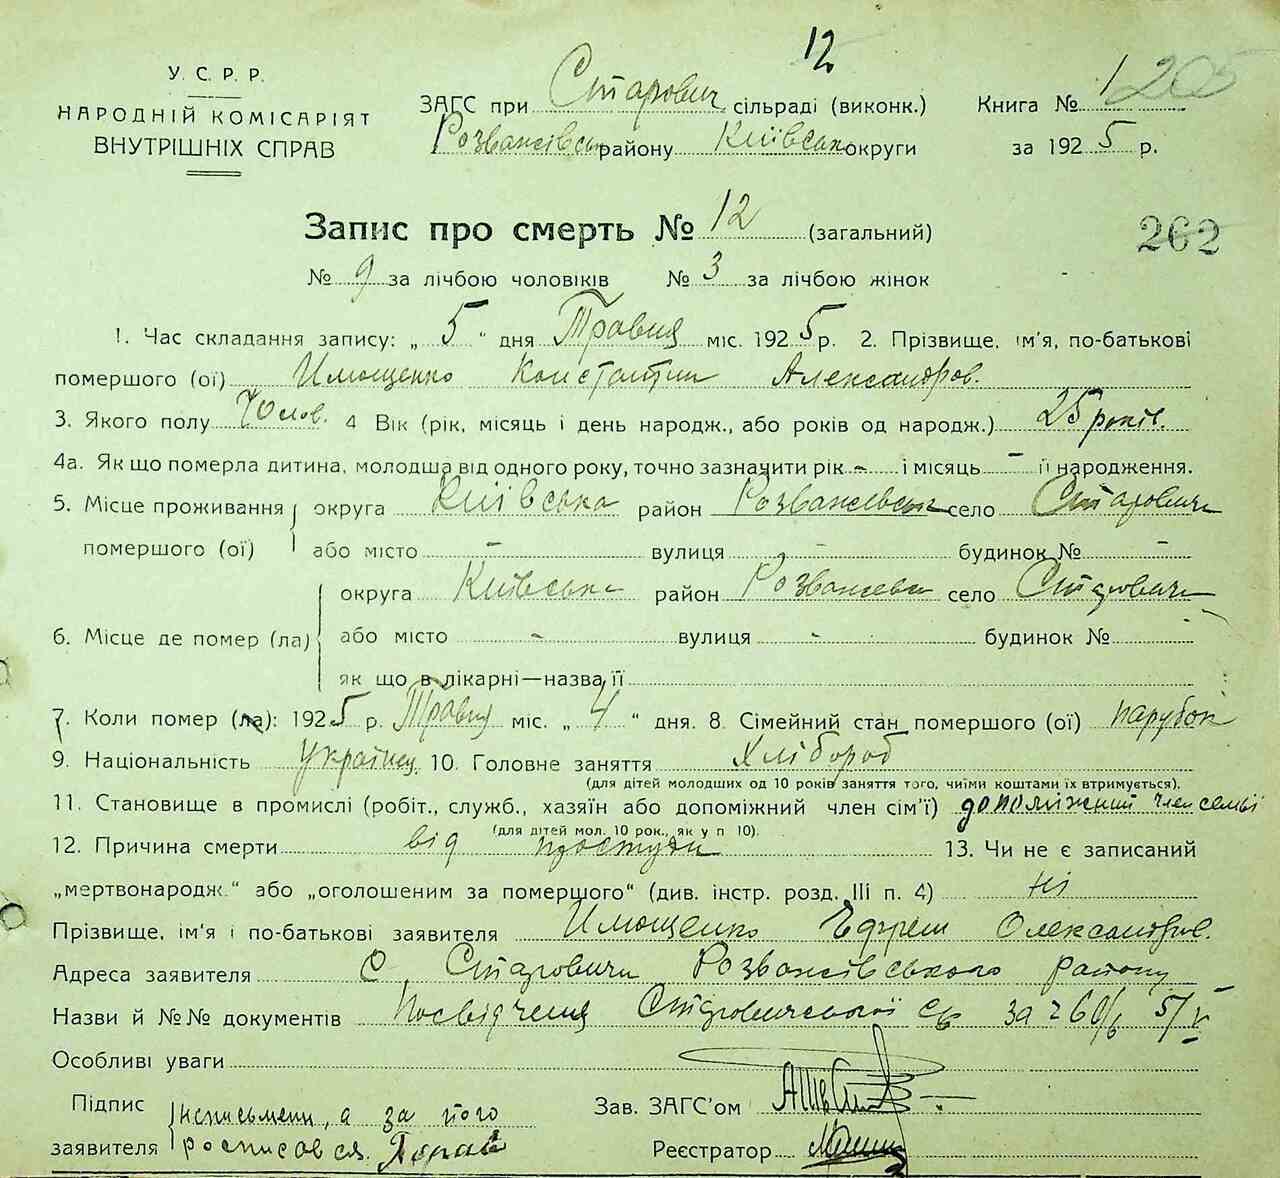 12
У. С. Р. Р.
НАРОДНІЙ КОМІСАРІЯТ
ВНУТРІШНІХ СПРАВ
ЗАГС при Старович сільраді (виконк.)
Розважівськ району Київськ округи
Книга № 1 205
за 1925 р.
Запис про смерть № 12 (загальний)
262
№ 9 за лічбою чоловіків № 3 за лічбою жінок
1. Час складання запису: „ 5 " дня Травня міс. 1925 р. 2. Прізвище, ім'я, по-батькові
помершого (ої) Имощенко Константин Александров.
3. Якого полу Чолов. 4 Вік (рік, місяць і день народж., або років од народж.) 25 років.
4а. Як що померла дитина, молодша від одного року, точно зазначити рік - і місяць - її народження.
5. Місце проживання округа Київська район Розважівськ село Старовичи
помершого (ої) або місто - вулиця - будинок № -
округа Київська район Розважевск село Старовичи
6. Місце де помер (ла) або місто - вулиця - будинок №
як що в лікарні—назва її
7. Коли помер (ла): 1925 р. Травня міс. „ 4 " дня. 8. Сімейний стан помершого (ої) парубок
9. Національність Українец 10. Головне заняття Хлібороб
(для дітей молодших од 10 років заняття того, чиїми коштами їх втримується).
11. Становище в промислі (робіт., служб., хазяїн або допоміжний член сім'ї) допоміжний член семьї
(для дітей мол. 10 рок., як у п 10).
12. Причина смерти від простуди 13. Чи не є записаний
„мертвонародж." або „оголошеним за помершого" (див. інстр. розд. III п. 4) ні
Прізвище, ім'я і по-батькові заявителя Имощенко Ефрем Олександров.
Адреса заявителя С Старовичи Розважівського району
Назви й №№ документів Посвідчення Старовичської за ч 60/6 5/V
Особливі уваги
Підпис неписьмени, а за його
заявителя росписався
Зав. ЗАГС'ом
Реєстратор